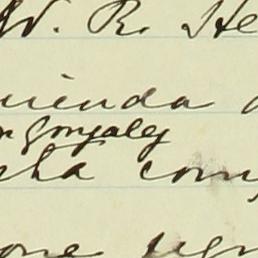 W. R. He
uienda a
n Gonzalez
cha com
one